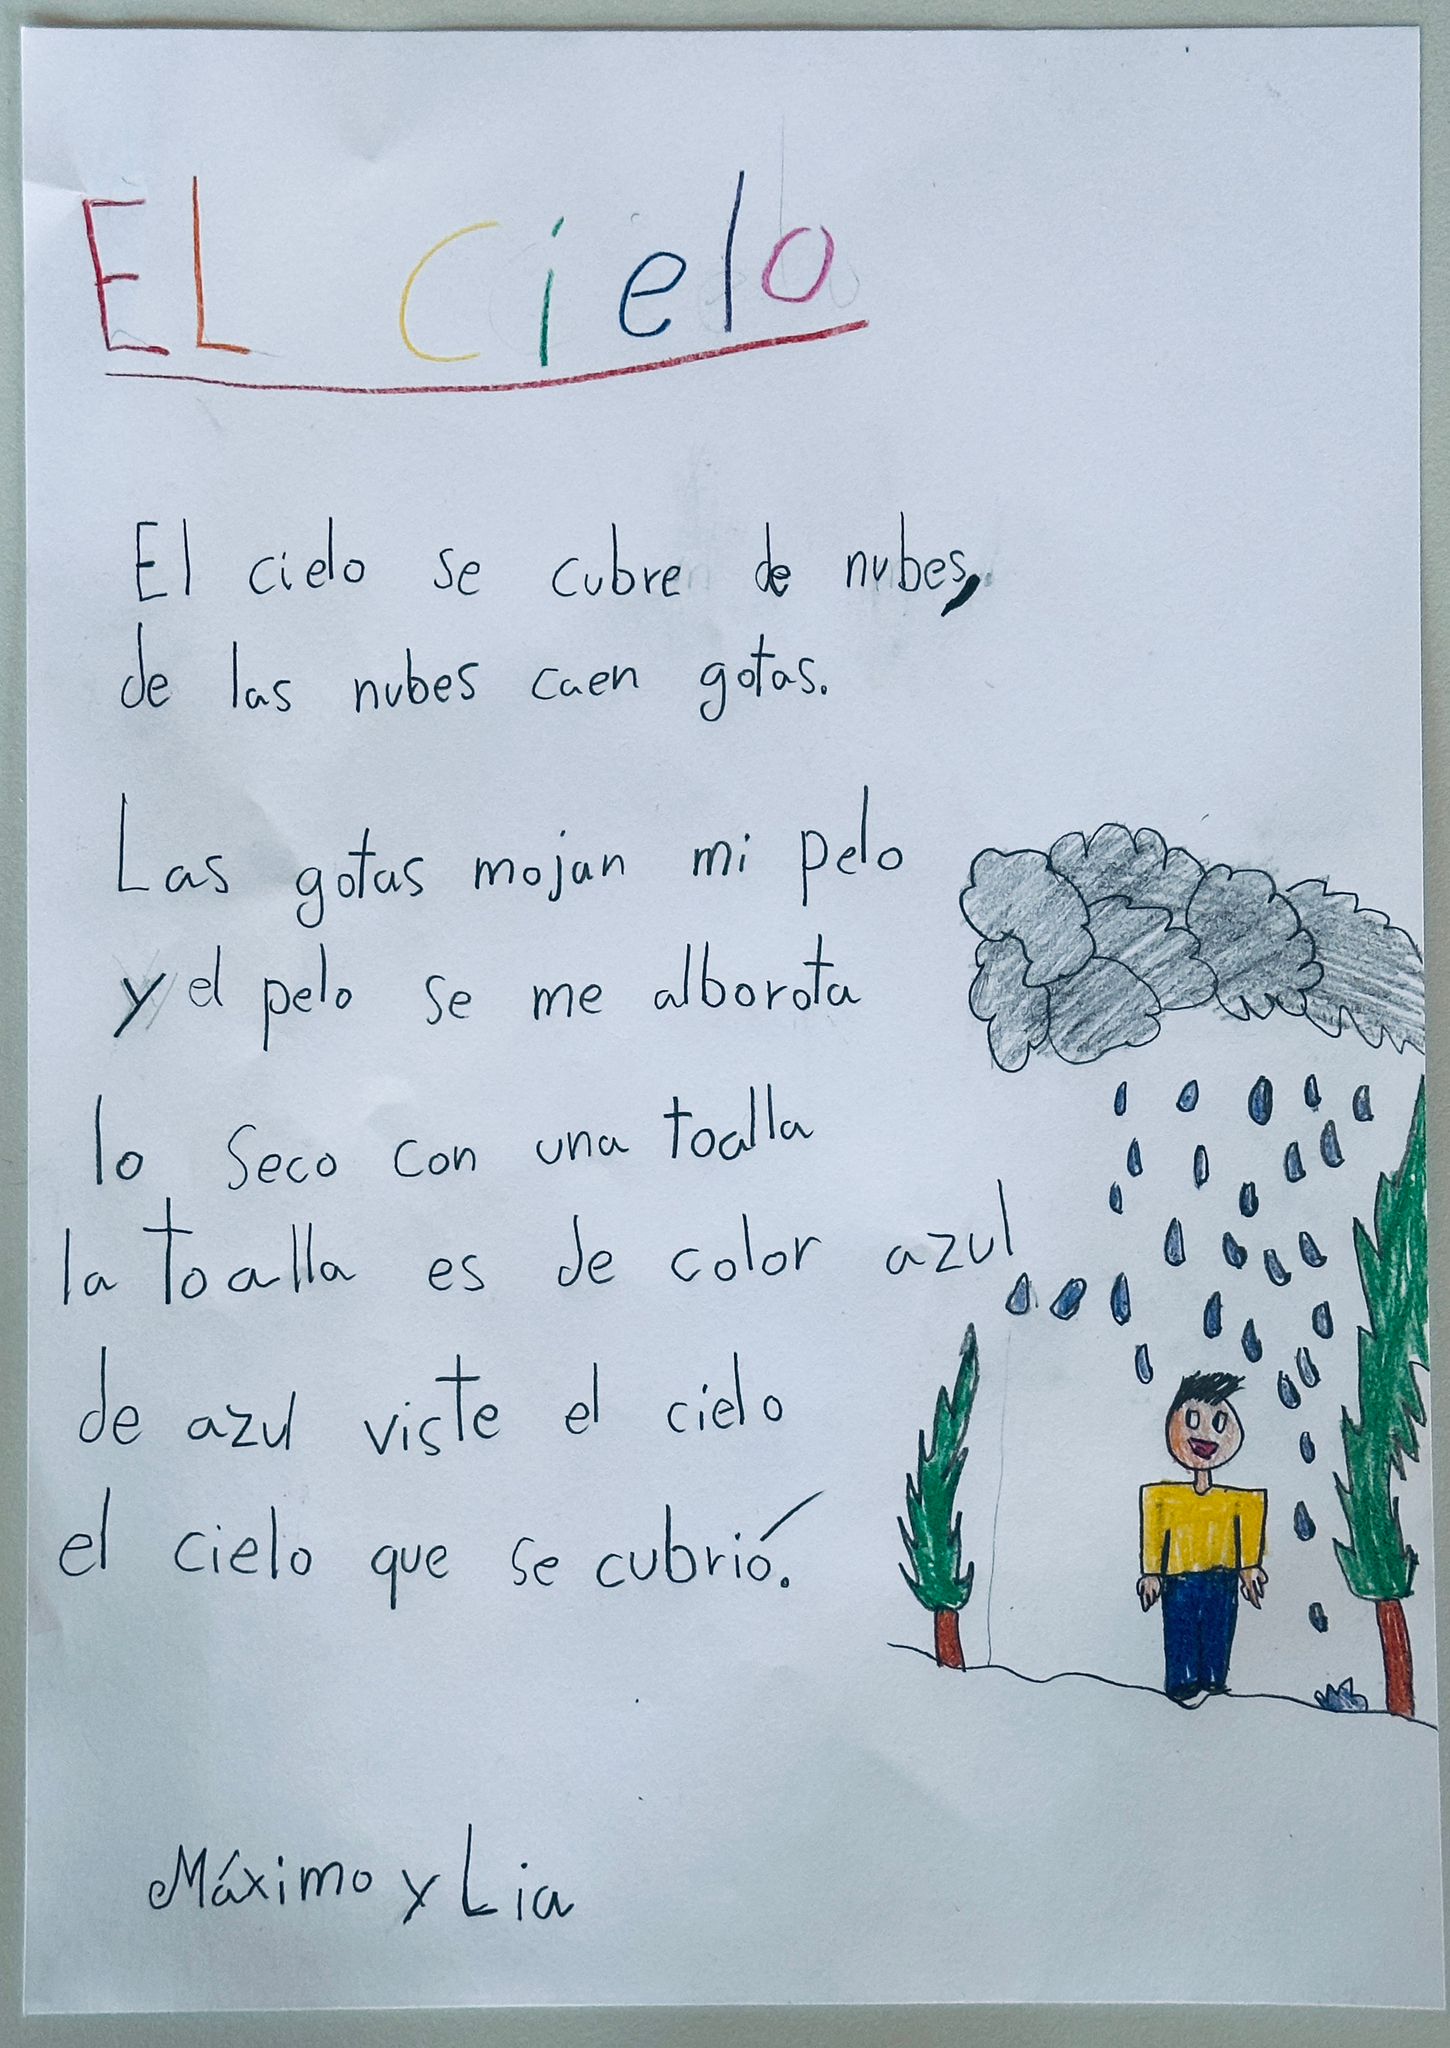 EL Cielo
El cielo se cubre de nubes,
de las nubes caen gotas.
Las gotas mojan mi pelo
y el pelo se me alborota
lo seco con una toalla
la toalla es de color azul
de azul viste el cielo
el cielo que se cubrió.
Máximo y Lia